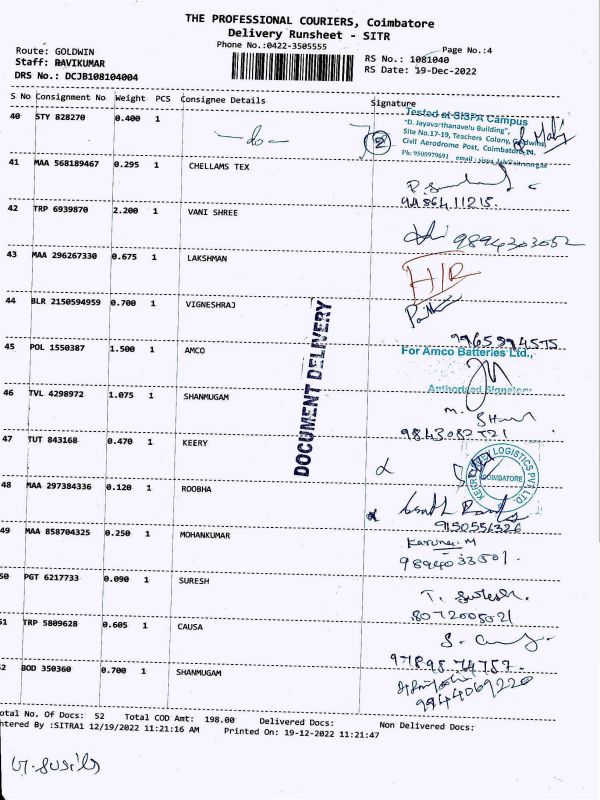 THE PROFESSIONAL COURIERS, Coimbatore
Delivery Runsheet - SITR
Phone No.:0422-3505555
Page No.:4
Route: GOLDWIN
Staff: RAVIKUMAR
DRS No.: DCJB108104004
RS No.: 1081040
RS Date: 19-Dec-2022
S No Consignment No Weight PCS Consignee Details Signature
40 STY 828270 0.400 1 -do-
Tested at SISPA Campus
"D. Jayavarthanavelu Building",
Site No.17-19, Teachers Colony, Goldwins,
Civil Aerodrome Post, Coimbatore-14.
Ph: 9500979691
41 MAA 568189467 0.295 1 CHELLAMS TEX
9486411215
42 TRP 6939870 2.200 1 VANI SHREE
9894303052
43 MAA 296267330 0.675 1 LAKSHMAN
H/R
44 BLR 2150594959 0.700 1 VIGNESHRAJ
9965594575
DOCUMENT DELIVERY
45 POL 1550387 1.500 1 AMCO
For Amco Batteries Ltd.,
Authorised Signatory
46 TVL 4298972 1.075 1 SHANMUGAM
9843082521
47 TUT 843168 0.470 1 KEERY
LOGISTICS PVT. LTD.
COIMBATORE
48 MAA 297384336 0.120 1 ROOBHA
9150556326
49 MAA 858704325 0.250 1 MOHANKUMAR
Karuna. M
50 PGT 6217733 0.090 1 SURESH
T. Suresh.
8072005021
51 TRP 5809628 0.605 1 CAUSA
9789574757.
52 BOD 350360 0.700 1 SHANMUGAM
9944069220
Total No. Of Docs: 52 Total COD Amt: 198.00 Delivered Docs: Non Delivered Docs:
Entered By :SITRA1 12/19/2022 11:21:16 AM Printed On: 19-12-2022 11:21:47